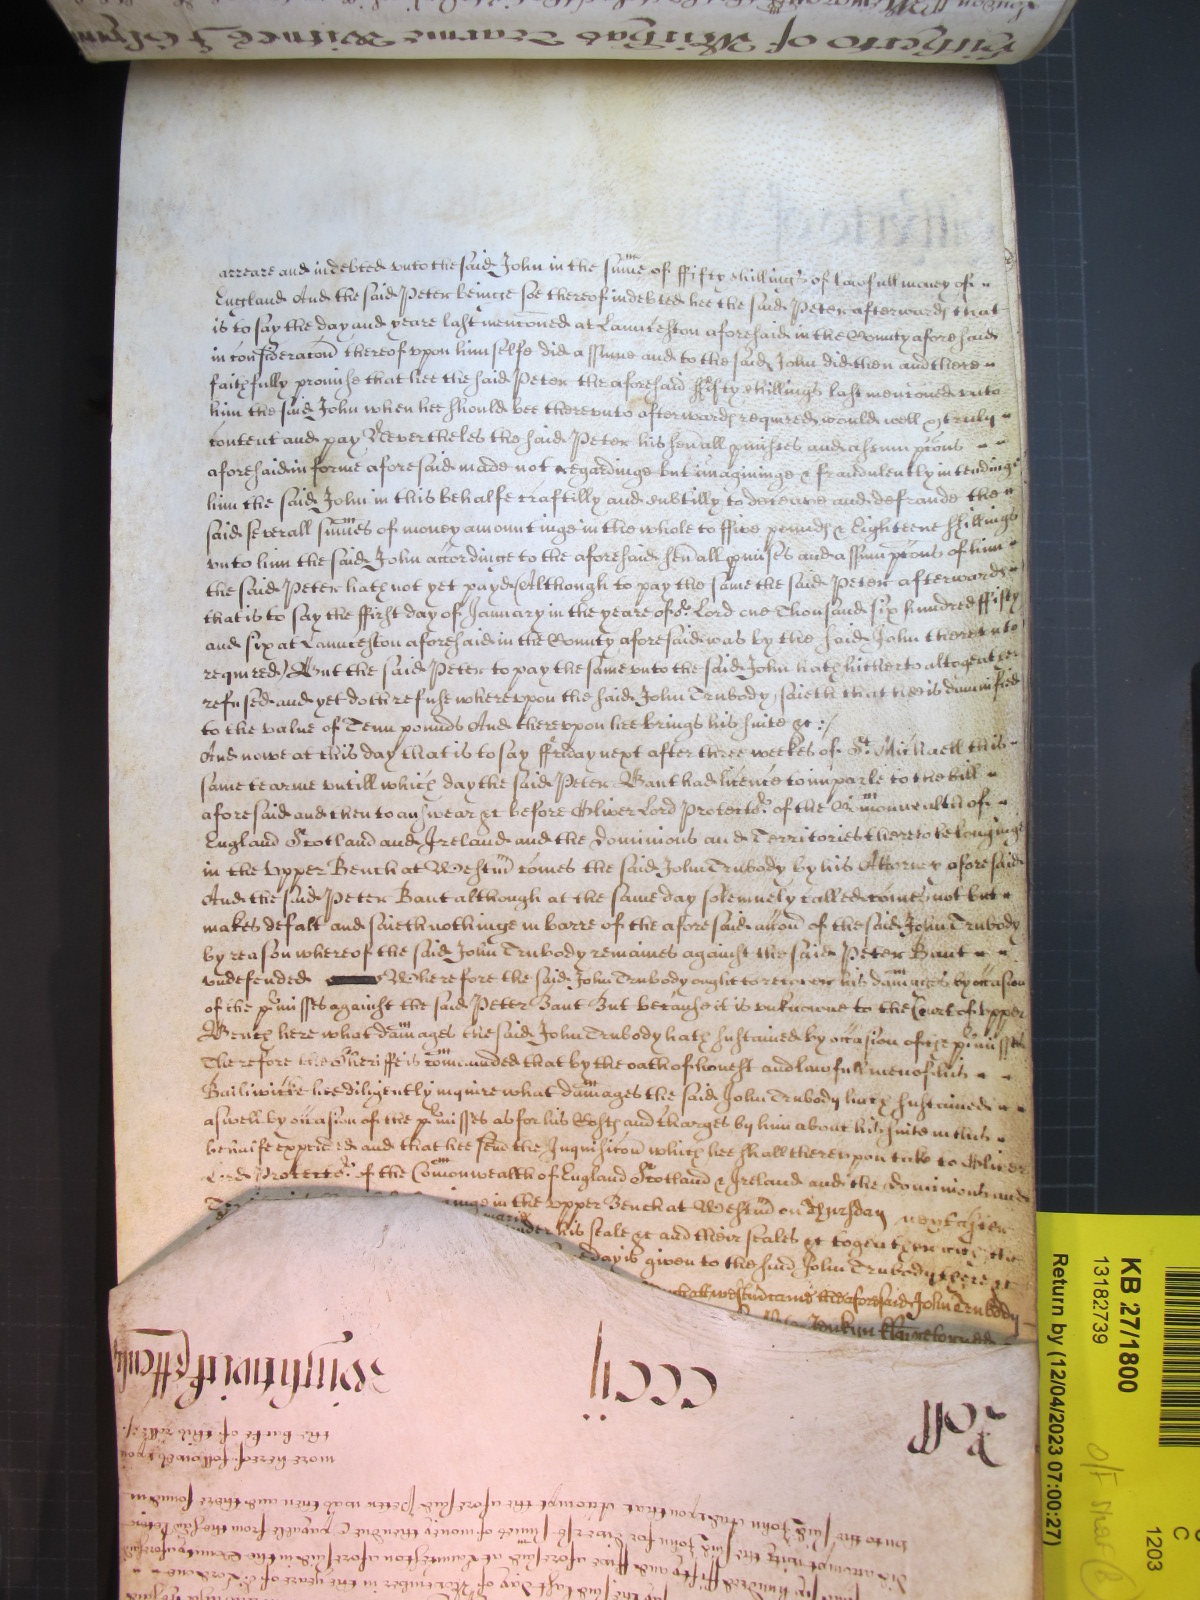 Hitherto of Michas Tearme Witnes
arreare and indebted vnto the said John in the sume of ffifty shillings of lawfull money of
England And the said Peter beinge soe thereof indebted hee the said Peter afterwards that
is to say the day and yeare last menconed at Launceston aforesaid in the County aforesaid
in consideracon thereof vpon himselfe did assume and to the said John did then and there
faithfully promise that hee the said Peter the aforesaid ffifty shillings last menconed vnto
him the said John when hee should bee therevnto afterwards required would well & truly
content and pay Nevertheles the said Peter his seuall pmises and assumpcons
aforesaid in forme aforesaid made not regardinge but imagininge & fraudulently intendinge
him the said John in this behalfe craftilly and subtilly to deceave and defraude the
said severall sumes of money amountinge in the whole to ffive pounds & Eighteene shillings
vnto him the said John accordinge to the aforesaid seuall pmises and assumpcons of him
the said Peter hath not yet payd (Although to pay the same the said Peter afterwards
that is to say the ffirst day of January in the yeare of or Lord one Thousand six hundred ffifty
and six at Launceston aforesaid in the County aforesaid was by the said John therevnto
required) But the said Peter to pay the same vnto the said John hath hitherto altogeather
refused and yet doth refuse wherevpon the said John Trubody saieth that hee is damnified
to the value of Tenn pounds And therevpon hee brings his suite &c :/
And nowe at this day that is to say ffriday next after three weekes of St Michaell this
same tearme vntill which day the said Peter Bant had licence to imparle to the bill
aforesaid and then to answear &c before Oliver Lord Protector of the Comonwealth of
England Scotland and Ireland and the Dominions and Territories thereto belonginge
in the Vpper Bench at Westm comes the said John Trubody by his Attorney aforesaid
And the said Peter Bant although at the same day solemnely called comes not but
makes defalt and saieth nothinge in barre of the aforesaid accon of the said John Trubody
by reason whereof the said John Trubody remaines against the said Peter Bant
vndefended Wherefore the said John Trubody ought to recover his damages by occasion
of the pmisses against the said Peter Bant But because it is vnknowne to the Court of vpper
Bench here what damages the said John Trubody hath sustained by occasion of the pmisses
Therefore the Sheriffe is comanded that by the oath of honest and lawfull men of his
Bailiwicke hee diligently inquire what damages the said John Trubody hath sustained
aswell by occasion of the pmisses as for his Costs and charges by him about his suite in this
behalfe expended and that hee send the Inquisicon which hee shall therevpon take to Oliver
Lord Protector of the Comonwealth of England Scotland & Ireland and the Dominions and
inge in the vpper Bench at Westm on Thursday next after
vnder his seale &c and their seales &c togeather with the
day is given to the said John Trubody there &c
att Westm came the aforesaid John Trubody
Roll
cccij
Wightwick
more hereof followeth vpon
the backe of this roll
vnto the said John And vpon that Accompt the aforesaid Peter was then and there found in
did accompt with the said John for divers sumes of money then due & payable from the said Peter
six hundred ffifty and ffive aforesaid at Launceston aforesaid in the County aforesaid
say the said last day of November in the yeare of or Lord one
KB 27/1800
13182739
Return by (12/04/2023 07:00:27)
C
1203